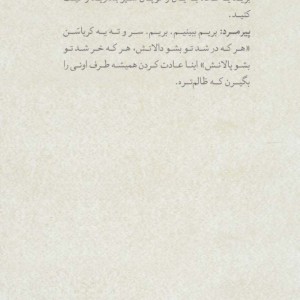 کنید.
پیرمرد: بریم ببینیم. بریم. سر و ته یه کرباسن
«هر که در شد تو بشو دالانش، هر که خر شد تو
بشو پالانش» اینا عادت کردن همیشه طرف اونی را
بگیرن که ظالم‌تره.